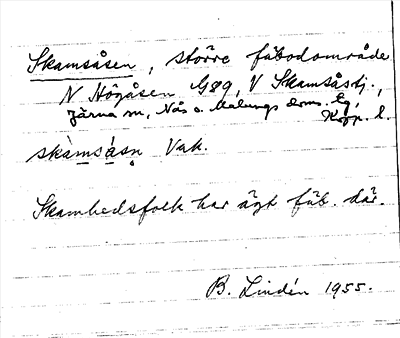 Skamsåsen, större fäbodområde
N Högåsen G89, V Skamsåsdj.,
Järna sn, Nås o. Malungs doms. lg,
Kopp. l.
skàmsásṇ Vak.
Skamhedsfolk har ägt fäb. där.
B. Lindén 1955.